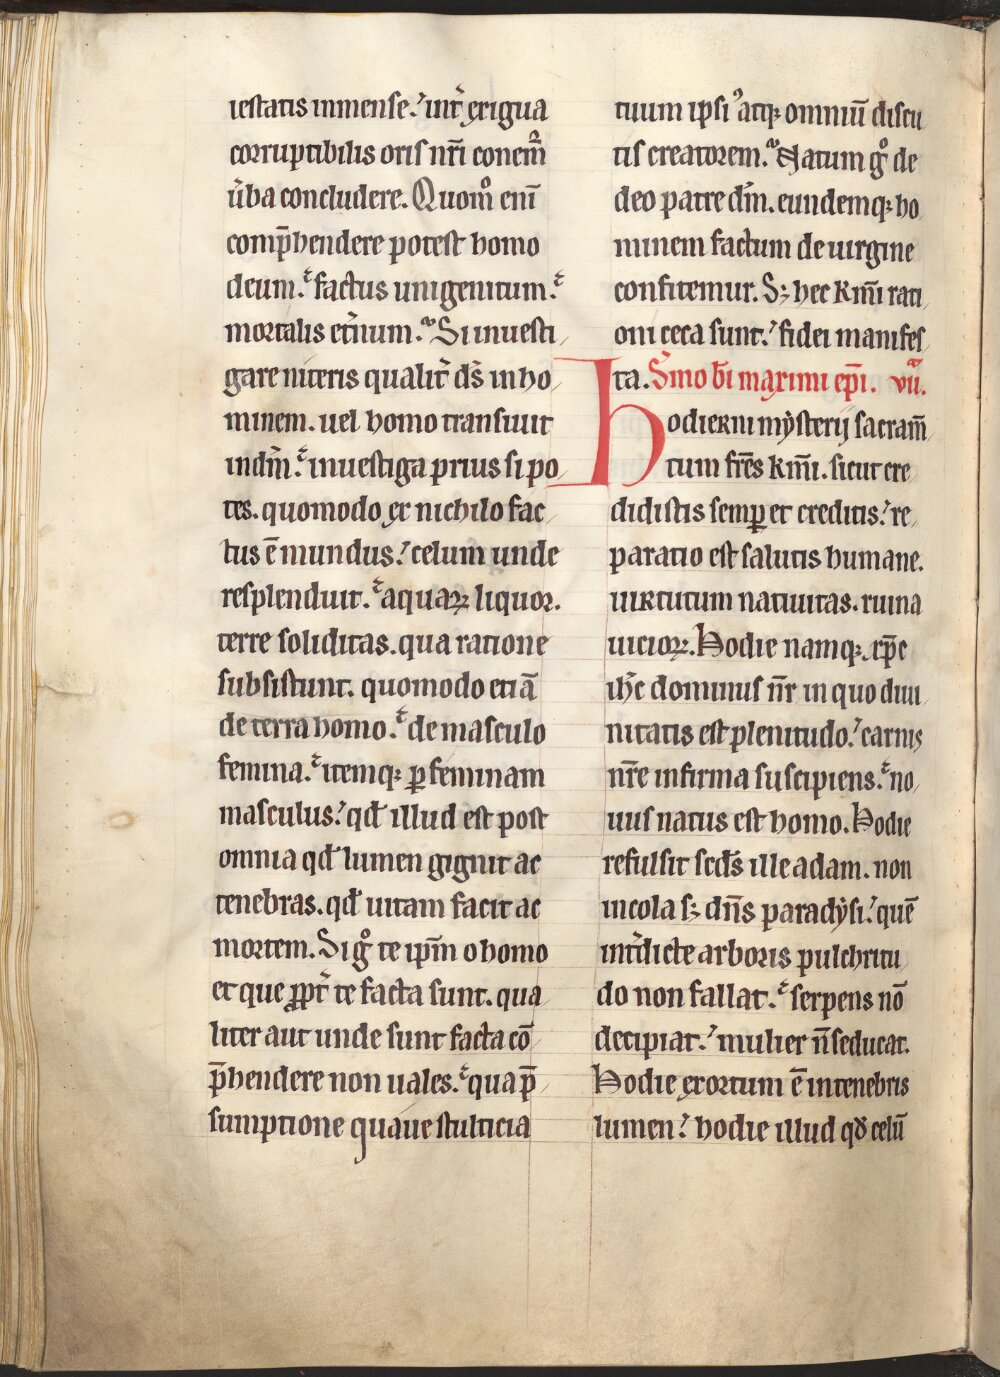 iestatis inmense.ʼ int̉ exigua
corruptibilis oris nr̄i conem̄
u̾ba concludere. Quom̊ eni̅
comp̄hendere potest homo
deum. factus unigenitum.
mortalis et̾num. Si inuesti
gare niteris qualit̾ ds̄ in ho
minem. uel homo transiuit
in dm̄. inuestiga prius si po
tes. quomodo ex nichilo fac
tus ē mundus. celum unde
resplenduit. aquaꝝ liquor.
terre soliditas. qua ratione
subsistunt. quomodo etiā
de terra homo. de masculo
femina. itemq; ꝑ feminam
masculus. qđ illud est post
omnia qđ lumen gignit ac
tenebras. qđ uitam facit ac
mortem. Si g̊ te ipm̄ o homo
et que ꝓpt̾ te facta sunt. qua
liter aut unde sunt facta cō
p̄hendere non uales. qua p̄
sumptione quaue stulticia
tuum ipsiꝰ atq; omniū discu
tis creatorem. Natum g̊ de
deo patre dm̄. eundemq; ho
minem factum de uirgine
confitemur. S; hec km̄i rati
oni ceca sunt. fidei manifes
ta. S̾mo bi̅ maximi ep̄i. vii.
Hodierni mẏsterij sacram̄
tum fr̄es km̄i. sicut cre
didistis semꝑ et creditis. re
paratio est salutis humane.
uirtutum natiuitas. ruina
uicioꝝ. Hodie namq; xp̄c
ih̄c dominus nr̄ in quo diui
nitatis est plenitudo. carnis
nr̄e infirma suscipiens. no
uus natus est homo. Hodie
refulsit scd̄s ille adam. non
incola s; dn̄s paradẏsi. quē
int̾dicte arboris pulchritu
do non fallat. serpens nō
decipiat. mulier n̄ seducat.
Hodie exortum ē in tenebris
lumen. hodie illud qđ celū